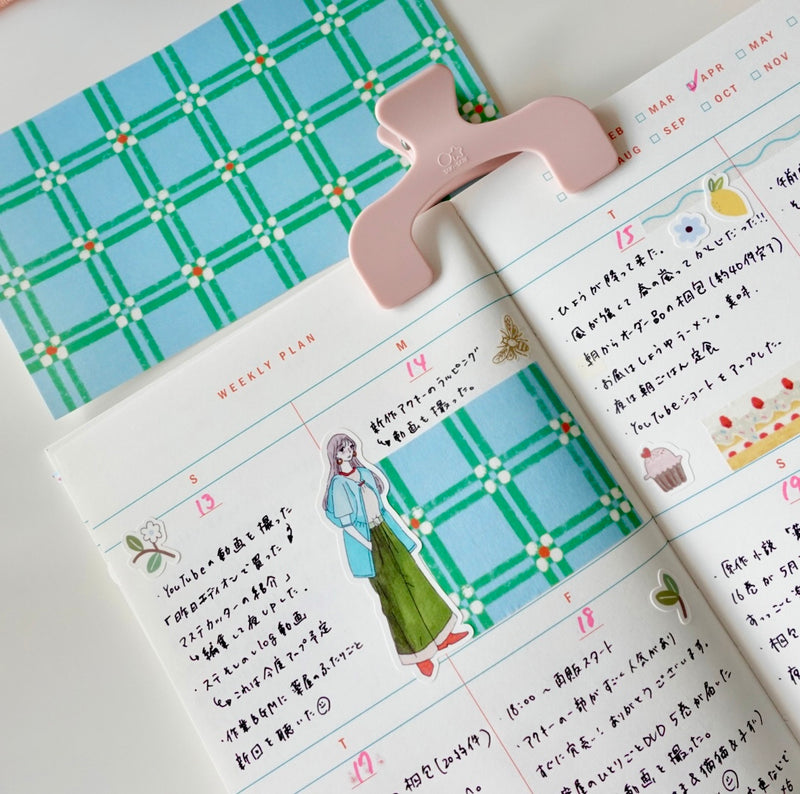 MAR
APR
MAY
AUG
SEP
OCT
NOV
WEEKLY PLAN
S
13
・YouTubeの動画を撮った
「昨日エディオンで買った
マステカッターの紹介」
↳編集して夜UPした。
・ステキしのlog動画
↳これは今度アップ予定
・作業BGMに薬屋のひとりごと
新回を聴いた
M
14
新作アクキーのラッピング
↳動画も撮った。
T
15
・ひょうが降って来た。
・風が強くて春の嵐ってかんじだった!!
・朝からオーダー品の梱包(約40件完了)
・お昼はしょうゆラーメン。美味.
・夜は朝ごはん定食
・YouTubeショートもアップした。
T
17
梱包(20件)
F
18
・18:00〜再販スタート
・アクキーの一部がすごく人気があり
すぐに完売…! ありがとうございます。
薬屋のひとりごとDVD 5巻が届いた
動画も撮った。
S
19
・原作小説「薬
16巻が5月
すっごく
・梱包